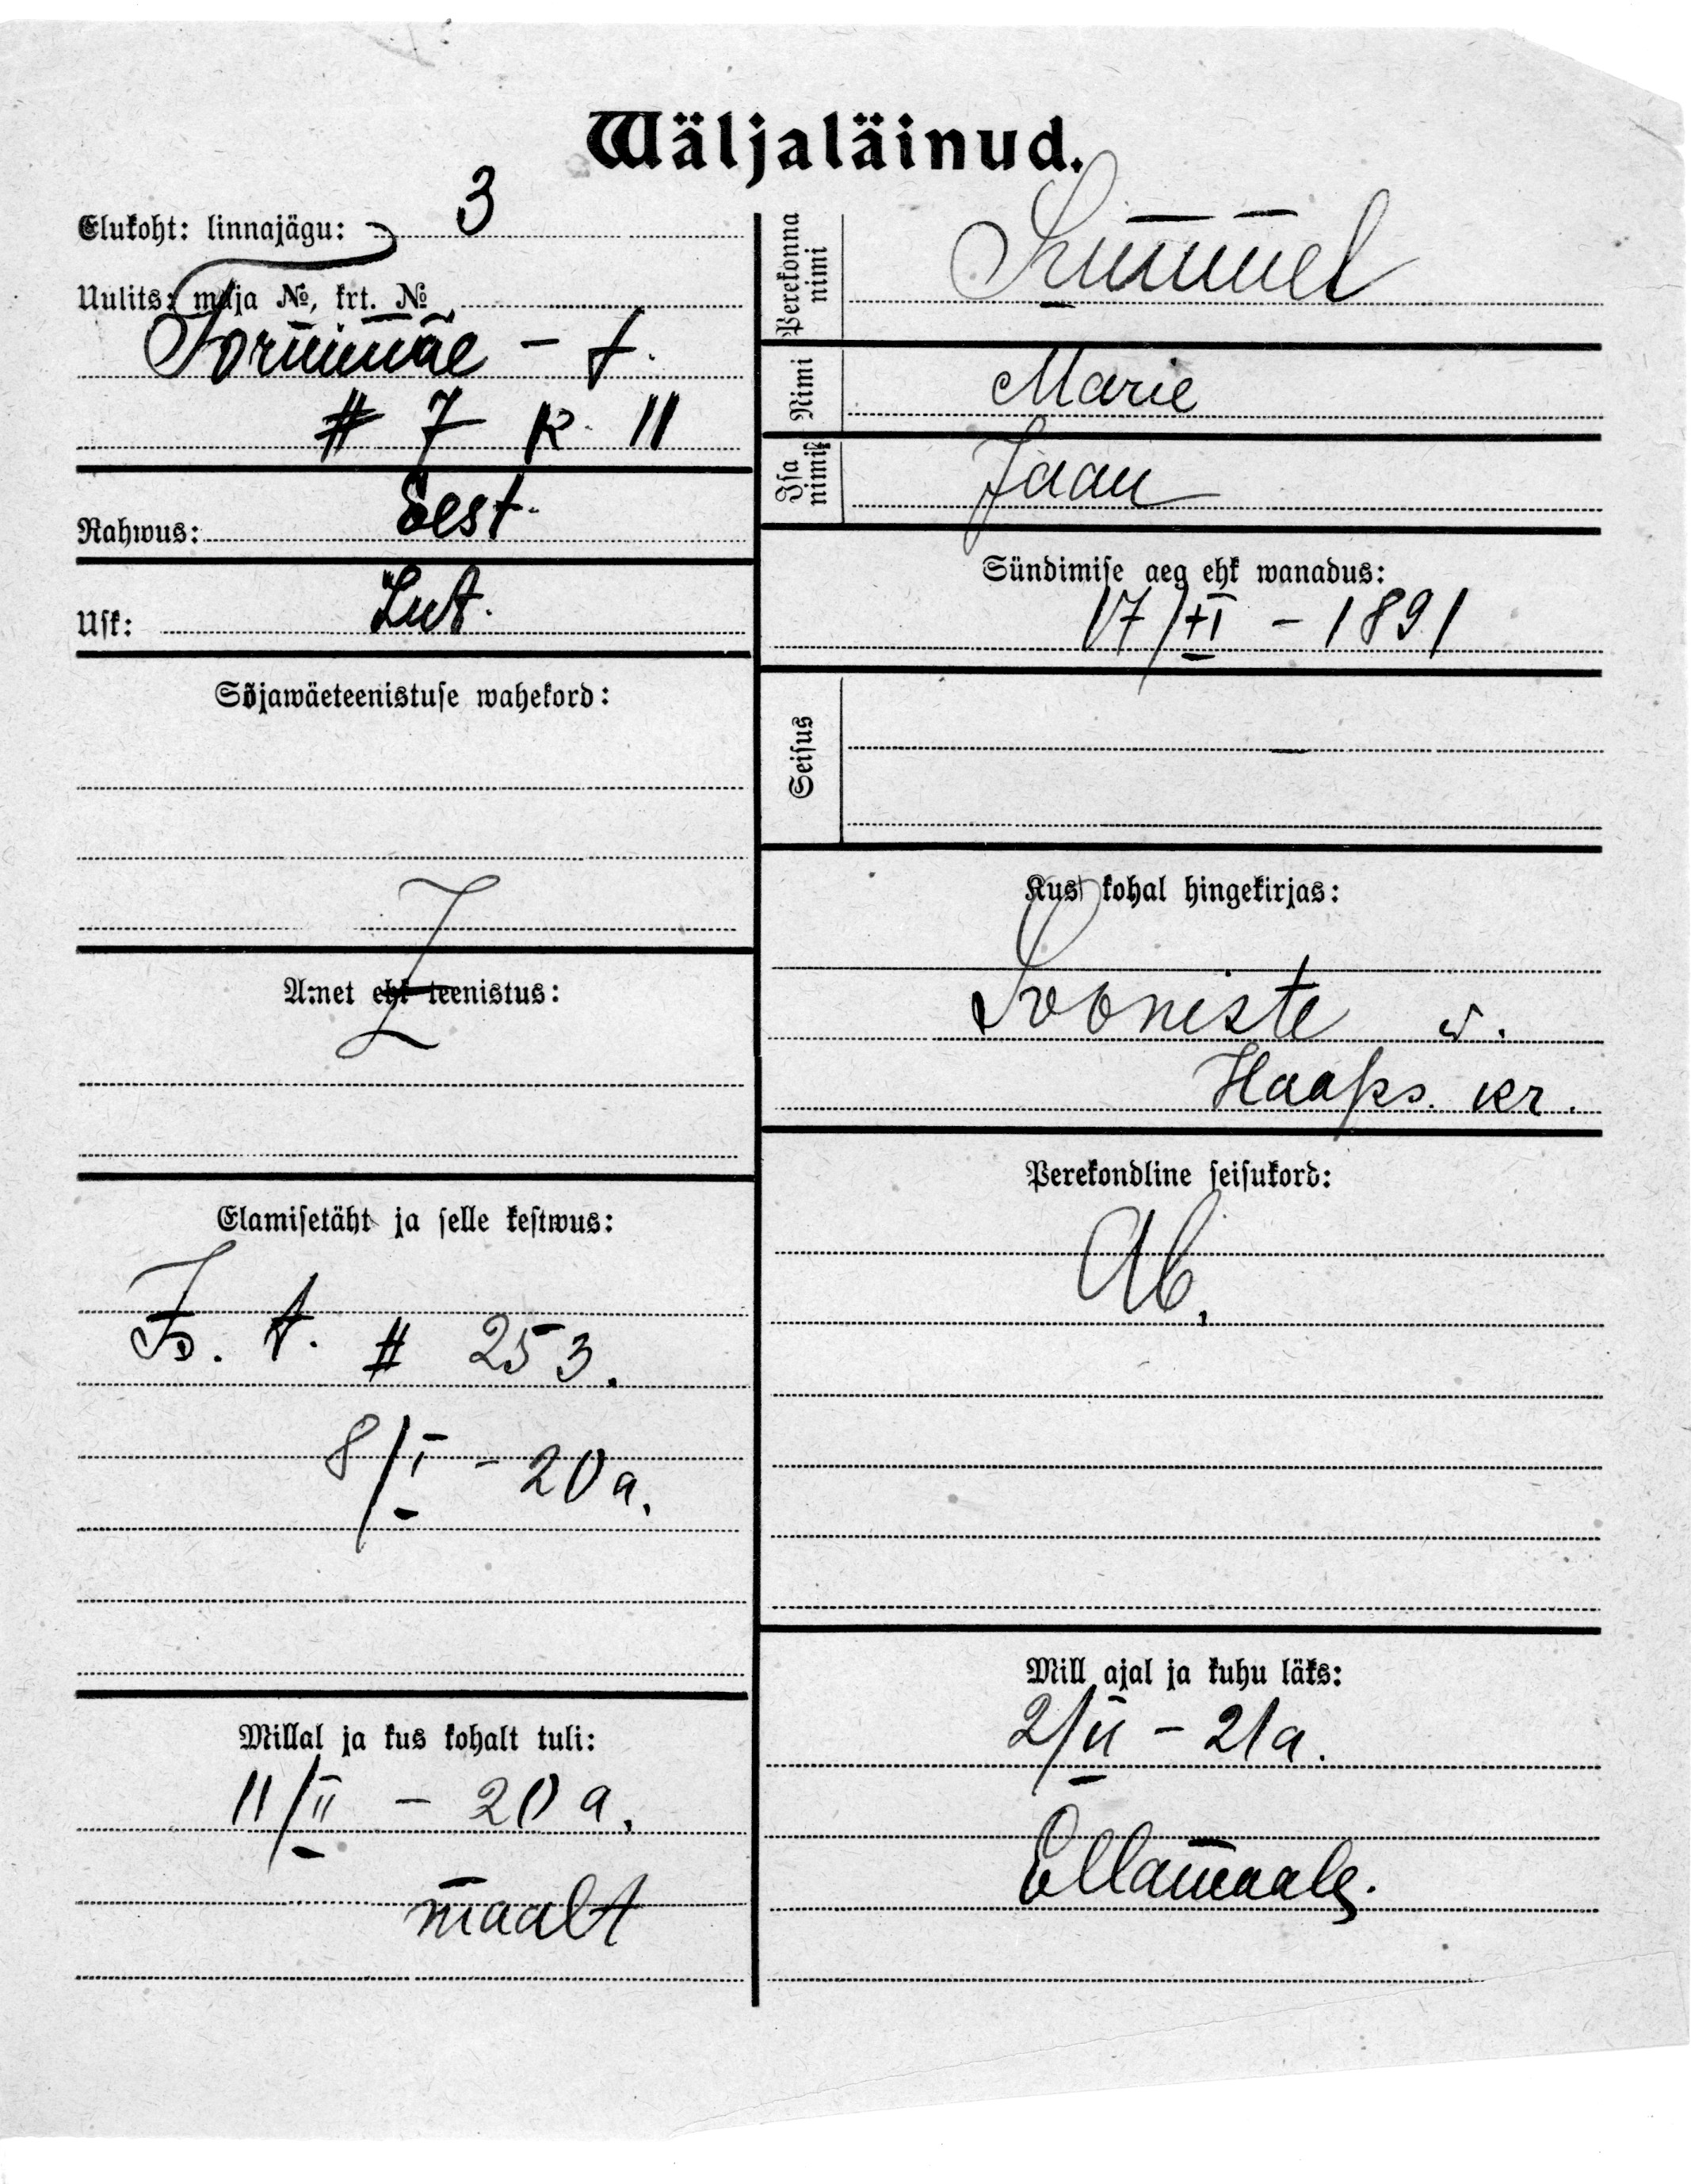 Wäljaläinud.
Elukoht: linnajägu: 3
Uulits: maja №, krt. №
Tornimäe - t.
# 7 k. 11
Rahwus: Eest.
Usk: Lut.
Sõjawäeteenistuse wahekord:
Amet ehk teenistus:
Elamisetäht ja selle kestwus:
t. # 253.
8/I - 20 a.
Millal ja kus kohalt tuli:
11/II - 20 a.
maalt
Perekonna nimi
Nimi Marie
Isa nimi Jaan
Sündimise aeg ehk wanadus:
17/XI - 1891
Seisus —
Kus kohal hingekirjas:
Sooniste w.
Haaps. kr.
Perekondline seisukord:
Ab.
Mill ajal ja kuhu läks:
2/II - 21 a.
Ellamaale.